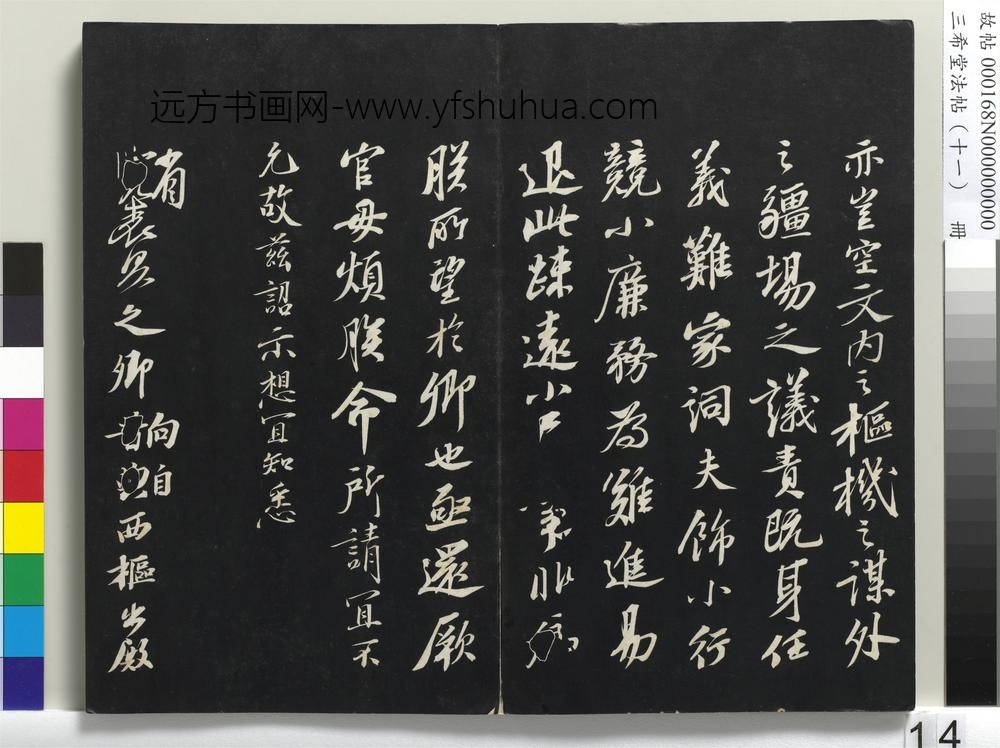 亦豈空文内之樞機之謀外
之疆埸之議責既身任
義難家詞夫飾小行
競小廉務為難進易
退此疎遠小
朕所望於卿也亟還厥
官毋煩朕命所請宜不
允故兹詔示想宜知悉
省
表具之卿
向自
西樞出殿
远方书画网-www.yfshuhua.com
故帖 000168N000000000
三希堂法帖(十一) 册
14